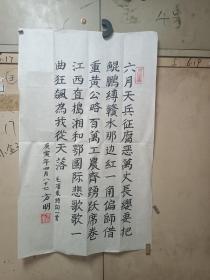 六月天兵征腐恶万丈长缨要把
鲲鹏缚赣水那边红一角偏师借
重黄公略百万工农齐踊跃席卷
江西直捣湘和鄂国际悲歌歌一
曲狂飙为我从天落
庚寅年四月八十七 方明